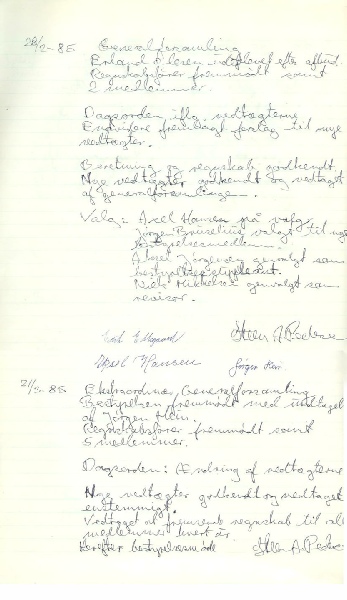 28/2-85 Generalforsamling
Erland Olesen indstævnet efter aftind.
Regnskabsfører fremmødt samt
2 medlemmer.
Dagsorden iflg. vedtægterne
fremlagt forslag til nye
vedtægter.
Beretning og regnskab godkendt.
Nye vedtægter godkendt og vedtaget
af generalforsamlingen.
Valg: Axel Hansen på valg,
Jørgen valgt til nyt
bestyrelsesmedlem.
Jørgensen genvalgt som
bestyrelsessuppleant.
Niels Mikkelsen genvalgt som
revisor.
Steen A. Pedersen
Axel Hansen Jørgen
21/5-85 Ekstraordinær Generalforsamling
Bestyrelsen fremmødt med undtagelse
af Jørgen
Regnskabsfører fremmødt samt
5 medlemmer.
Dagsorden: Ændring af vedtægterne
Nye vedtægter godkendt og vedtaget
enstemmigt.
Vedtaget at fremsende regnskab til alle
medlemmer hvert år.
Derefter bestyrelsesmøde Steen A. Pedersen